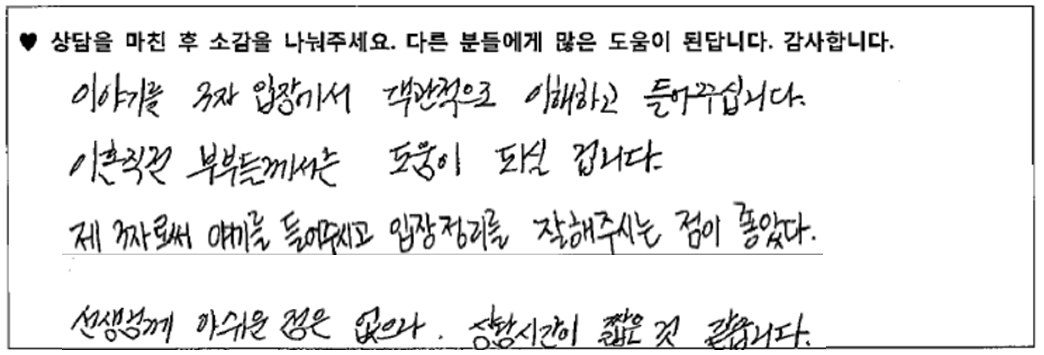 ♥ 상담을 마친 후 소감을 나눠주세요. 다른 분들에게 많은 도움이 된답니다. 감사합니다.
이야기를 3자 입장에서 객관적으로 이해하고 들어주십니다.
이혼직전 부부들께서는 도움이 되실 겁니다.
제 3자로써 얘기를 들어주시고 입장정리를 잘해주시는 점이 좋았다.
선생님께 아쉬운 점은 없으나. 상담시간이 짧은 것 같습니다.